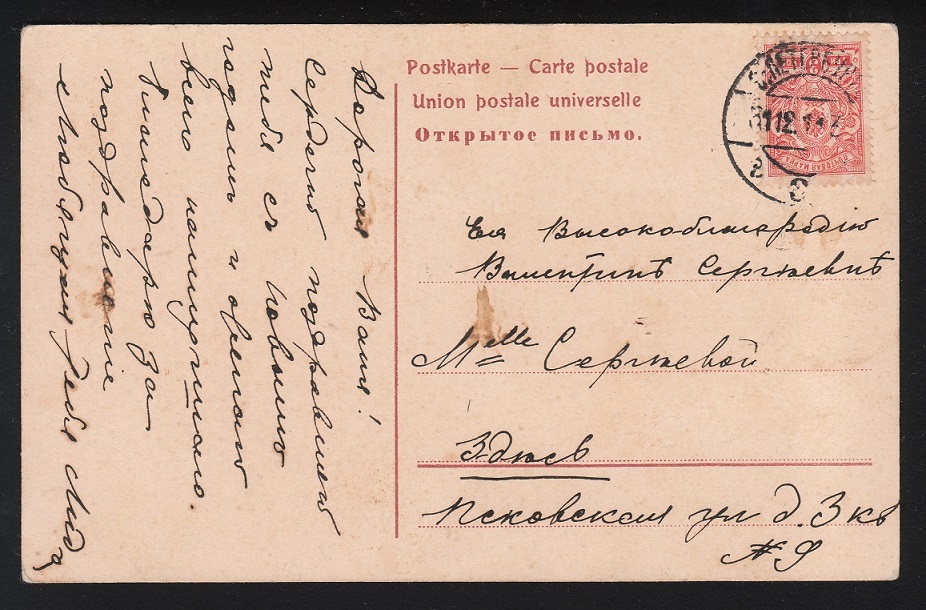 Postkarte — Carte postale
Union postale universelle
Открытое письмо.
ПОЧТОВАЯ МАРКА
31 12 11
Ея Высокоблагородію
Валентинѣ Сергѣевнѣ
Mlle Сергѣевой
Здѣсь
Псковская ул д. 3 кв
№ 9
Дорогая Валя!
Сердечно поздравляю
тебя съ Новымъ
годомъ и отъ
всего
Благодарю за
поздравленіе
Тебя Лида